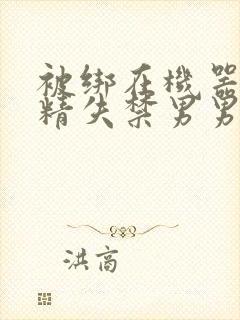 被绑在机器
精失禁男男
洪高